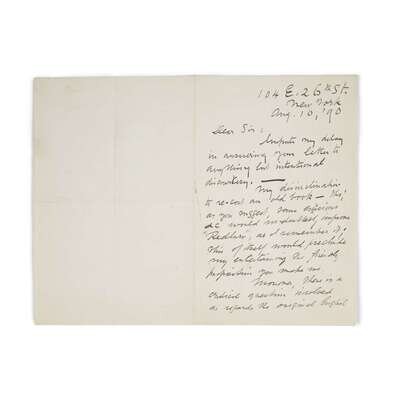 104 E. 26th St.
New York
Aug. 10, '90
Dear Sir:
Impute my delay
in answering your letter to
anything but intentional
discourtesy. — My disinclination
to re-cast an old book — tho',
as you suggest, some
&c would undoubtedly improve
Redburn, as I remember it,
this of itself would preclude
my entertaining the friendly
proposition you make me
Moreover, there is a
critical question involved
as regards the original English